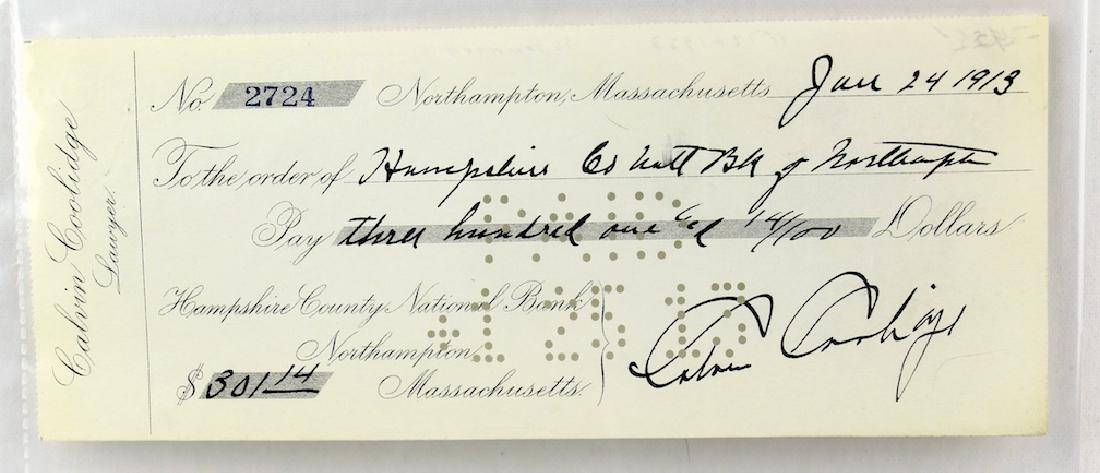 Calvin Coolidge
Lawyer.
No. 2724 Northampton, Massachusetts Jan 24 1913
To the order of Hampshire Co Natl Bk of Northampton
Pay three hundred one and 14/100 Dollars
Hampshire County National Bank
Northampton,
$301 14 Massachusetts.
Calvin Coolidge
PAID